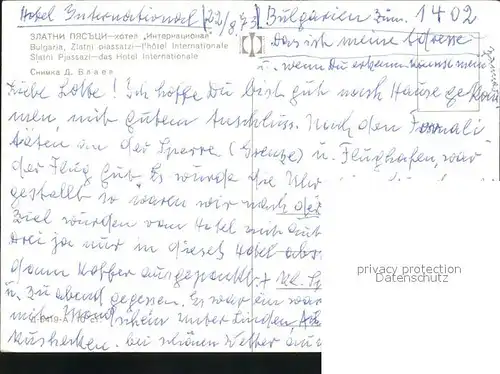 Hotel International (22/8.73) Bulgarien Zim. 1402
ЗЛАТНИ ПЯСЪЦИ—хотел „Интернационал"
Bulgaria, Zlatni piassatzi—l'hôtel Internationale
Slatni Pjassazi—das Hotel Internationale
Снимка Д. Владев
Das ist meine Adresse
u. wenn Du
Liebe Lotte! Ich hoffe Du bist gut nach Hause gekom
men, mit gutem Anschluss. Nach den Formali
täten an der Sperre (Grenze) u. Flughafen, war
der Flug gut. Es wurde die Uhr
gestellt so waren wir nach der
Ziel wurden vom Hotel mit Aut
drei ja nur in dieses Hotel aber
dann Koffer ausgepackt +
u. zu abend gegessen. Es war ein war
mit Mondschein unter Linden,
bei schönem Wetter au
privacy protection
Datenschutz